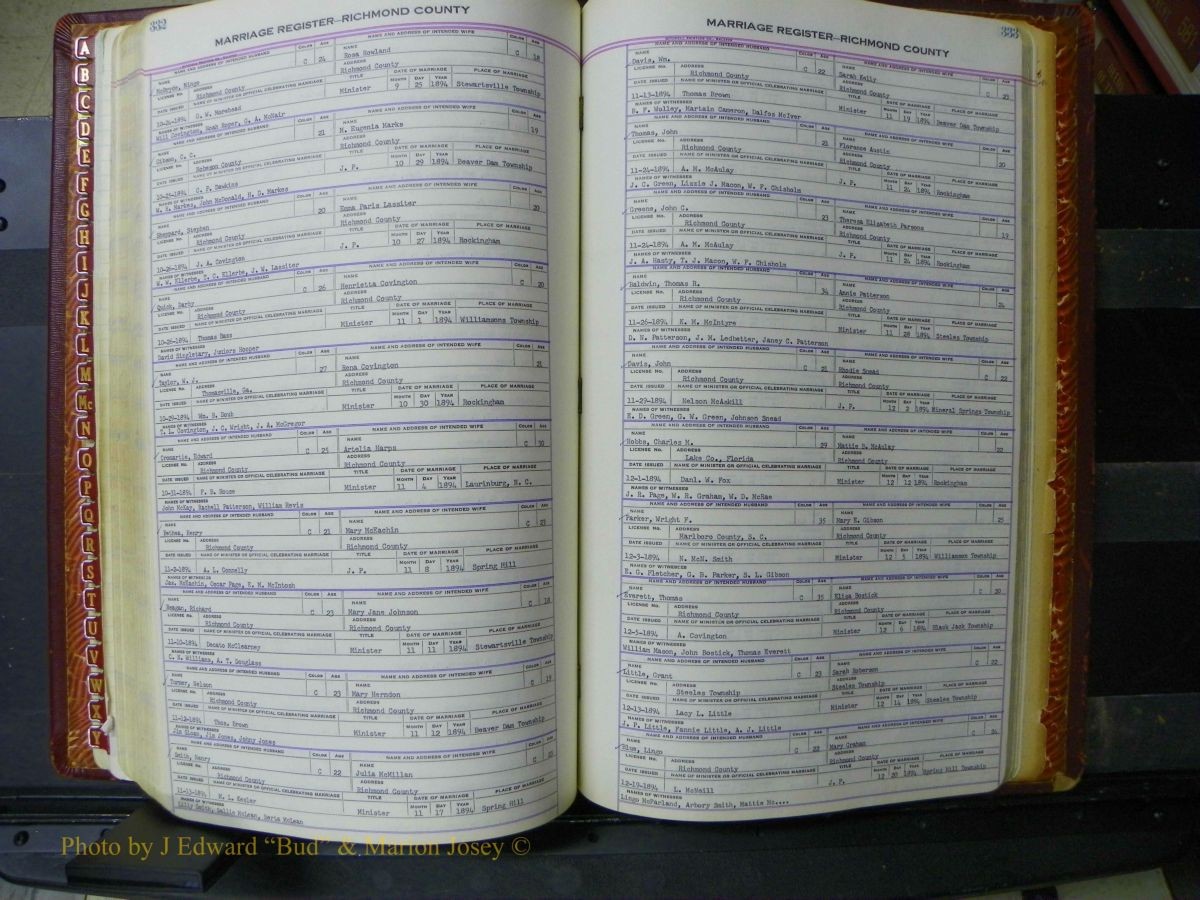 332
MARRIAGE REGISTER—RICHMOND COUNTY
NAME AND ADDRESS OF INTENDED HUSBAND COLOR AGE NAME AND ADDRESS OF INTENDED WIFE COLOR AGE
C 24 Rosa Rowland C 18
Richmond County Richmond County
9 25 1894 Stewartsville Township
D. W. Morehead
Will Covington, Noah Roper, C. A. McNair
Gibson, C. C. 21 M. Eugenia Marks 19
Robeson County Richmond County
J. P. 10 29 1894 Beaver Dam Township
C. P. Dawkins
W. S. Markes, John McDonald, H. D. Markes
Sheppard, Stephan 20 Emma Paris Lassiter 20
Richmond County Richmond County
J. P. 10 27 1894 Rockingham
10-26-1894 J. A. Covington
W. W. Ellerbe, C. C. Ellerbe, J. W. Lassiter
Quick, Darby C 26 Henrietta Covington C 20
Richmond County Richmond County
Minister 11 1 1894 Williamsons Township
10-26-1894 Thomas Bass
David Singletary, Juniors Hooper
Taylor, W. J. 27 Rena Covington 21
Thomasville, Ga. Richmond County
Minister 10 30 1894 Rockingham
10-29-1894 Wm. B. Doub
C. L. Covington, J. C. Wright, J. A. McGregor
Cromartie, Edward C 25 Artelia Harps C 30
Richmond County Richmond County
Minister 11 4 1894 Laurinburg, N. C.
10-31-1894 F. B. Rouse
John McKay, Rachell Patterson, William Revis
Bethea, Henry C 21 Mary McEachin C 23
Richmond County Richmond County
11-2-1894 A. L. Connelly J. P. 11 8 1894 Spring Hill
Jas. McEachin, Oscar Page, E. M. McIntosh
Reagan, Richard C 23 Mary Jane Johnson C 18
Richmond County Richmond County
11-10-1894 Decato McClearney Minister 11 11 1894 Stewartsville Township
C. N. Williams, A. T. Douglass
Turner, Nelson C 23 Mary Herndon C 19
Richmond County Richmond County
11-12-1894 Thos. Brown Minister 11 12 1894 Beaver Dam Township
Jim Sloan, Jim Jones, Johny Jones
Smith, Henry C 22 Julia McMillan C
Richmond County Richmond County
11-13-1894 M. L. Kesler Minister 11 17 1894 Spring Hill
333
MARRIAGE REGISTER—RICHMOND COUNTY
NAME AND ADDRESS OF INTENDED HUSBAND COLOR AGE NAME AND ADDRESS OF INTENDED WIFE COLOR AGE
Davis, Wm. C 22 Sarah Kelly C 23
Richmond County Richmond County
11-13-1894 Thomas Brown Minister 11 19 1894 Beaver Dam Township
B. F. Wolley, Martain Cameron, Dalfos McIver
Thomas, John 21 Florence Austin 20
Richmond County Richmond County
11-24-1894 A. M. McAulay J. P. 11 24 1894 Rockingham
J. C. Green, Lizzie J. Macon, W. F. Chisholm
Greene, John C. 23 Theresa Elizabeth Parsons 19
Richmond County Richmond County
11-24-1894 A. M. McAulay J. P. 11 24 1894 Rockingham
J. A. Hasty, T. J. Macon, W. F. Chisholm
Baldwin, Thomas R. 34 Annie Patterson 24
Richmond County Richmond County
11-26-1894 K. M. McIntyre Minister 11 28 1894 Steeles Township
D. N. Patterson, J. M. Ledbetter, Janey C. Patterson
Davis, John C 21 Rhodie Snead C 22
Richmond County Richmond County
11-29-1894 Nelson McAskill J. P. 12 2 1894 Mineral Springs Township
H. D. Green, G. W. Green, Johnson Snead
Hobbs, Charles M. 29 Mattie B. McAulay 22
Lake Co., Florida Richmond County
12-1-1894 Danl. W. Fox Minister 12 12 1894 Rockingham
J. R. Page, W. R. Graham, W. D. McRae
Parker, Wright F. 35 Mary E. Gibson 25
Marlboro County, S. C. Richmond County
12-3-1894 N. McN. Smith Minister 12 5 1894 Williamson Township
E. G. Fletcher, G. B. Parker, S. L. Gibson
Everett, Thomas C 35 Eliza Bostick C 30
Richmond County Richmond County
12-5-1894 A. Covington Minister 12 6 1894 Black Jack Township
William Mason, John Bostick, Thomas Everett
Little, Grant C 23 Sarah Roberson C 22
Steeles Township Steeles Township
12-13-1894 Lacy L. Little Minister 12 14 1894 Steeles Township
J. P. Little, Fannie Little, A. J. Little
Blue, Lingo C 22 Mary Graham C 24
Richmond County Richmond County
12-19-1894 L. McNeill J. P. 12 20 1894 Spring Hill Township
Lingo McFarland, Arbory Smith, Mattie Mc....
A
B
C
D
E
F
G
H
I
J
K
L
M
Mc
N
O
P
Q
R
S
T
U
V
W
Photo by J Edward "Bud" & Marion Josey ©